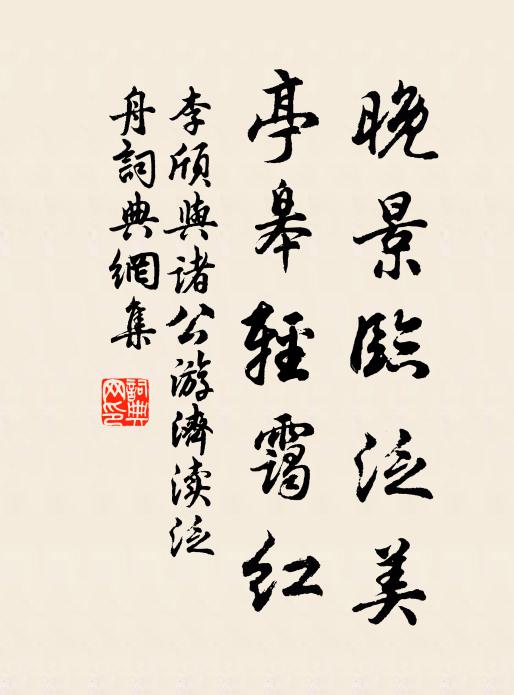 晚景臨泛美
亭皋輕靄紅
李頎與諸公游濟渎泛
舟詞典網集
詞典
网印